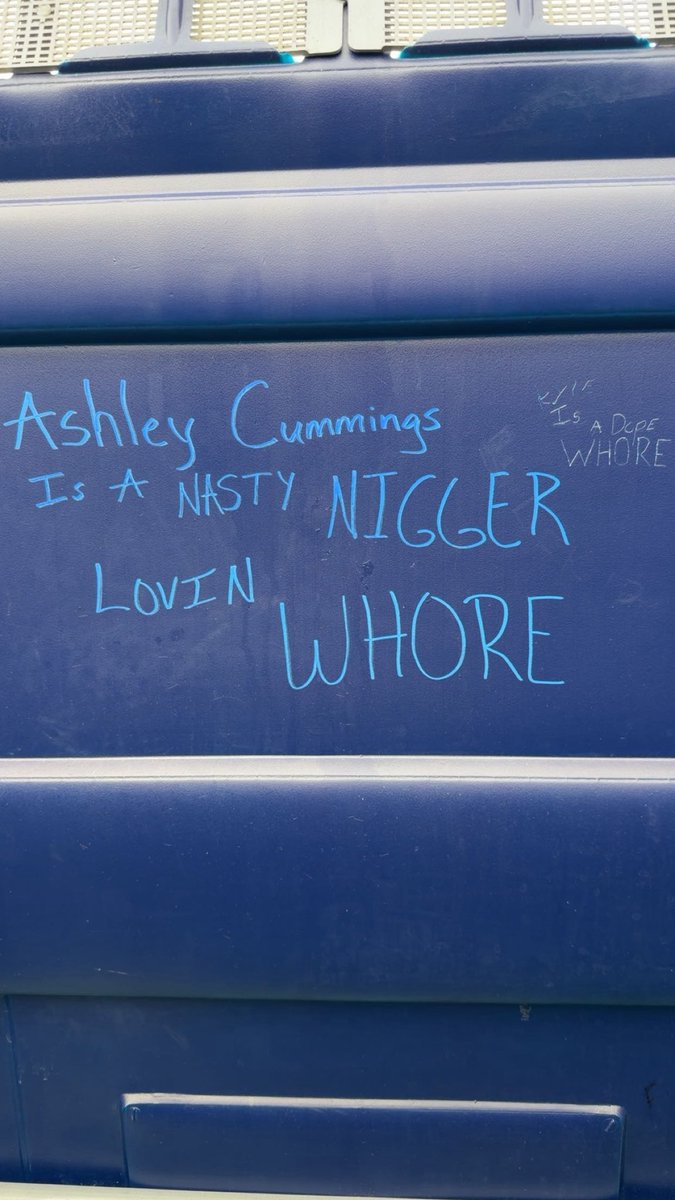 Ashley Cummings
Is A NASTY NIGGER
LOVIN WHORE
Is A DOPE
WHORE